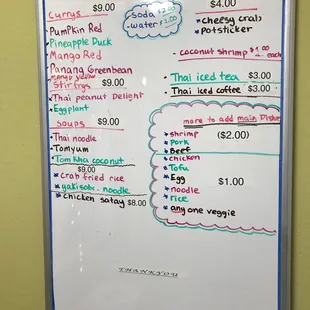 Currys $9.00
• Pumpkin Red
• Pineapple Duck
• Mango Red
• Panang Greenbean
• mango yellow
Stir frys $9.00
• Thai peanut Delight
• Eggplant
Soups $9.00
• Thai noodle
• Tomyum
• Tom kha coconut
$9.00
• crab fried rice
• yakisoba noodle
• chicken satay $8.00
soda $2.00
water $2.00
$4.00
• cheesy crab
• potsticker
• coconut shrimp $1.00 each
• Thai iced tea $3.00
• Thai iced coffee $3.00
more to add main Dishes
• shrimp ($2.00)
• Pork
• Beef
• chicken
• Tofu
• Egg $1.00
• noodle
• rice
• any one veggie
THANKYOU